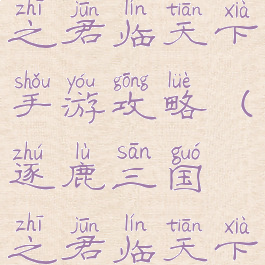 zhī jūn lín tiān xià
之君临天下
shǒu yóu gōng lüè
手游攻略（
zhú lù sān guó
逐鹿三国
zhī jūn lín tiān xià
之君临天下